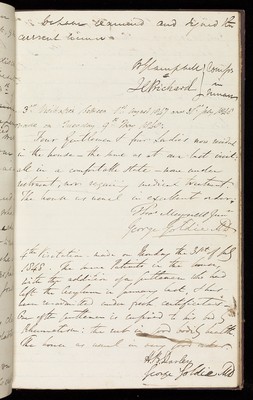 and
current
W Campbell
J C Prichard
3rd Visitation between 1st August 1847 and 31st July 1848
made on Tuesday 9th May 1848.
Four Gentlemen & four Ladies now resident
in the house – the same as at our last visit
all in a comfortable state – none under
restraint, nor requiring medical treatment.
The house as usual in excellent order.
Thos Meynell Junr
George Goldie MD
4th Visitation made on Monday the 31st of July
1848. The same Patients in the house
with the addition of a gentleman who had
left the Asylum in January last, & has
been readmitted under fresh certificates.
One of the gentlemen is confined to his bed by
Rheumatism: the rest in good bodily health
The house as usual in very good order
George Goldie MD